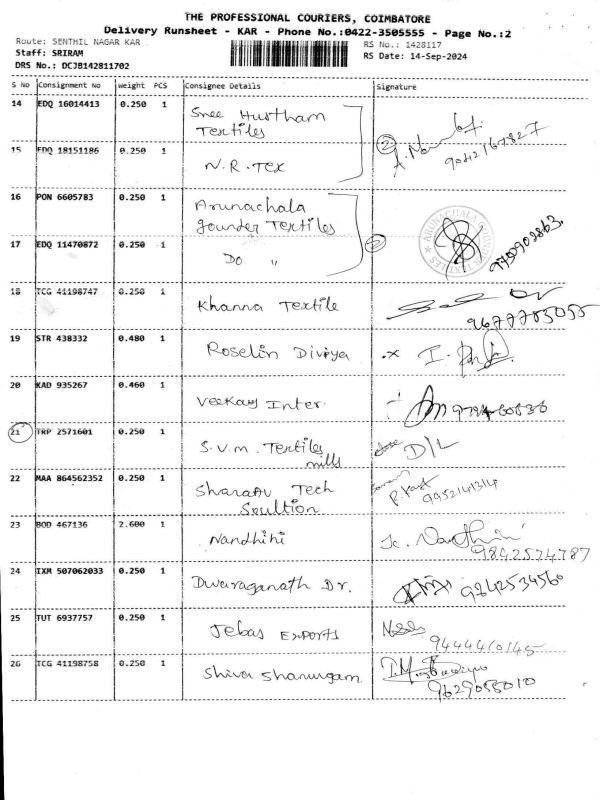 THE PROFESSIONAL COURIERS, COIMBATORE
Delivery Runsheet - KAR - Phone No.:0422-3505555 - Page No.:2
Route: SENTHIL NAGAR KAR
RS No.: 1428117
Staff: SRIRAM
RS Date: 14-Sep-2024
DRS No.: DCJB142811702
S No Consignment No Weight PCS Consignee Details Signature
14 EDQ 16014413 0.250 1 Sree Hustham
Textiles
2
9042167827
15 EDQ 18151186 0.250 1 N.R.Tex
16 PON 6605783 0.250 1 Arunachala
Gounder Textiles
2
17 EDQ 11470872 0.250 1 Do "
18 TCG 41198747 0.250 1 Khanna Textile
9677785055
19 STR 438332 0.480 1 Roselin Diviya
20 KAD 935267 0.460 1 Veekay Inter.
21 TRP 2571601 0.250 1 S.V.M. Textiles
mills
D/L
22 MAA 864562352 0.250 1 Sharaav Tech
Soultion
9952141314
23 BOD 467136 2.600 1 Nandhini
9842574787
24 IXM 507062033 0.250 1 Dwaraganath Dr.
9842534560
25 TUT 6937757 0.250 1 Jebas Exports
9444410145
26 TCG 41198758 0.250 1 Shiva Shanmugam
9629055010